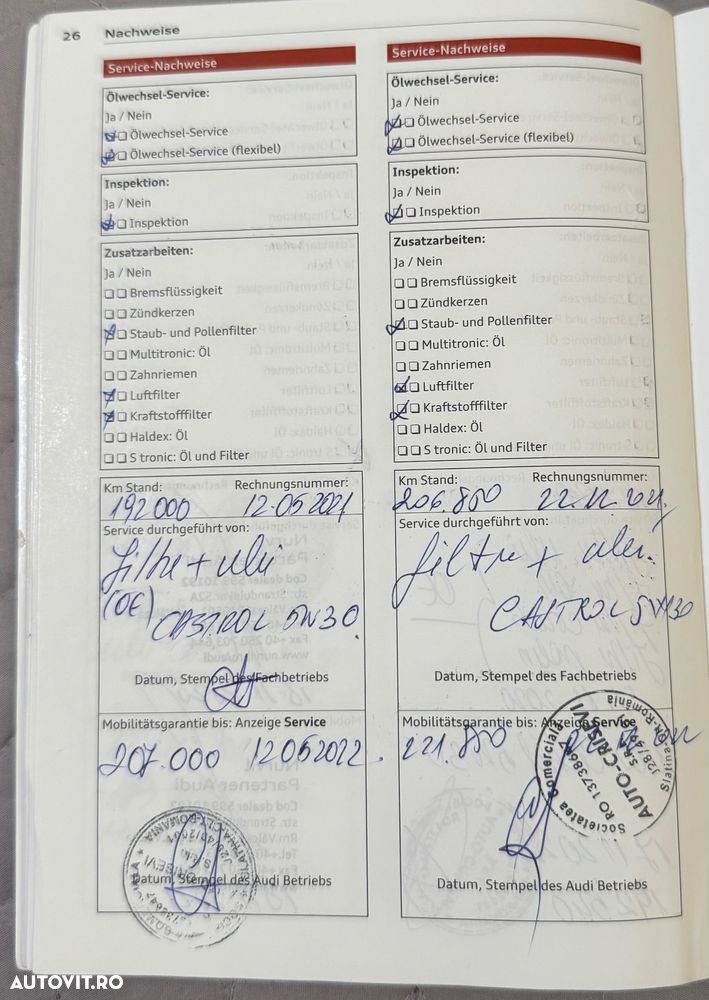 26 Nachweise
Service-Nachweise
Ölwechsel-Service:
Ja / Nein
Ölwechsel-Service
Ölwechsel-Service (flexibel)
Inspektion:
Ja / Nein
Inspektion
Zusatzarbeiten:
Ja / Nein
Bremsflüssigkeit
Zündkerzen
Staub- und Pollenfilter
Multitronic: Öl
Zahnriemen
Luftfilter
Kraftstofffilter
Haldex: Öl
S tronic: Öl und Filter
Km Stand: Rechnungsnummer:
192000 12.05.2021
Service durchgeführt von:
filtre + ulei
(OE) CASTROL 5W30
Datum, Stempel des Fachbetriebs
Mobilitätsgarantie bis: Anzeige Service
207.000 12052022
Datum, Stempel des Audi Betriebs
Service-Nachweise
Ölwechsel-Service:
Ja / Nein
Ölwechsel-Service
Ölwechsel-Service (flexibel)
Inspektion:
Ja / Nein
Inspektion
Zusatzarbeiten:
Ja / Nein
Bremsflüssigkeit
Zündkerzen
Staub- und Pollenfilter
Multitronic: Öl
Zahnriemen
Luftfilter
Kraftstofffilter
Haldex: Öl
S tronic: Öl und Filter
Km Stand: Rechnungsnummer:
206.850
Service durchgeführt von:
filtre + ulei
CASTROL 5W30
Datum, Stempel des Fachbetriebs
Mobilitätsgarantie bis: Anzeige Service
221.850
Societatea Comerciala
AUTO-CRISEVI
Slatina-România
Datum, Stempel des Audi Betriebs
AUTOVIT.RO